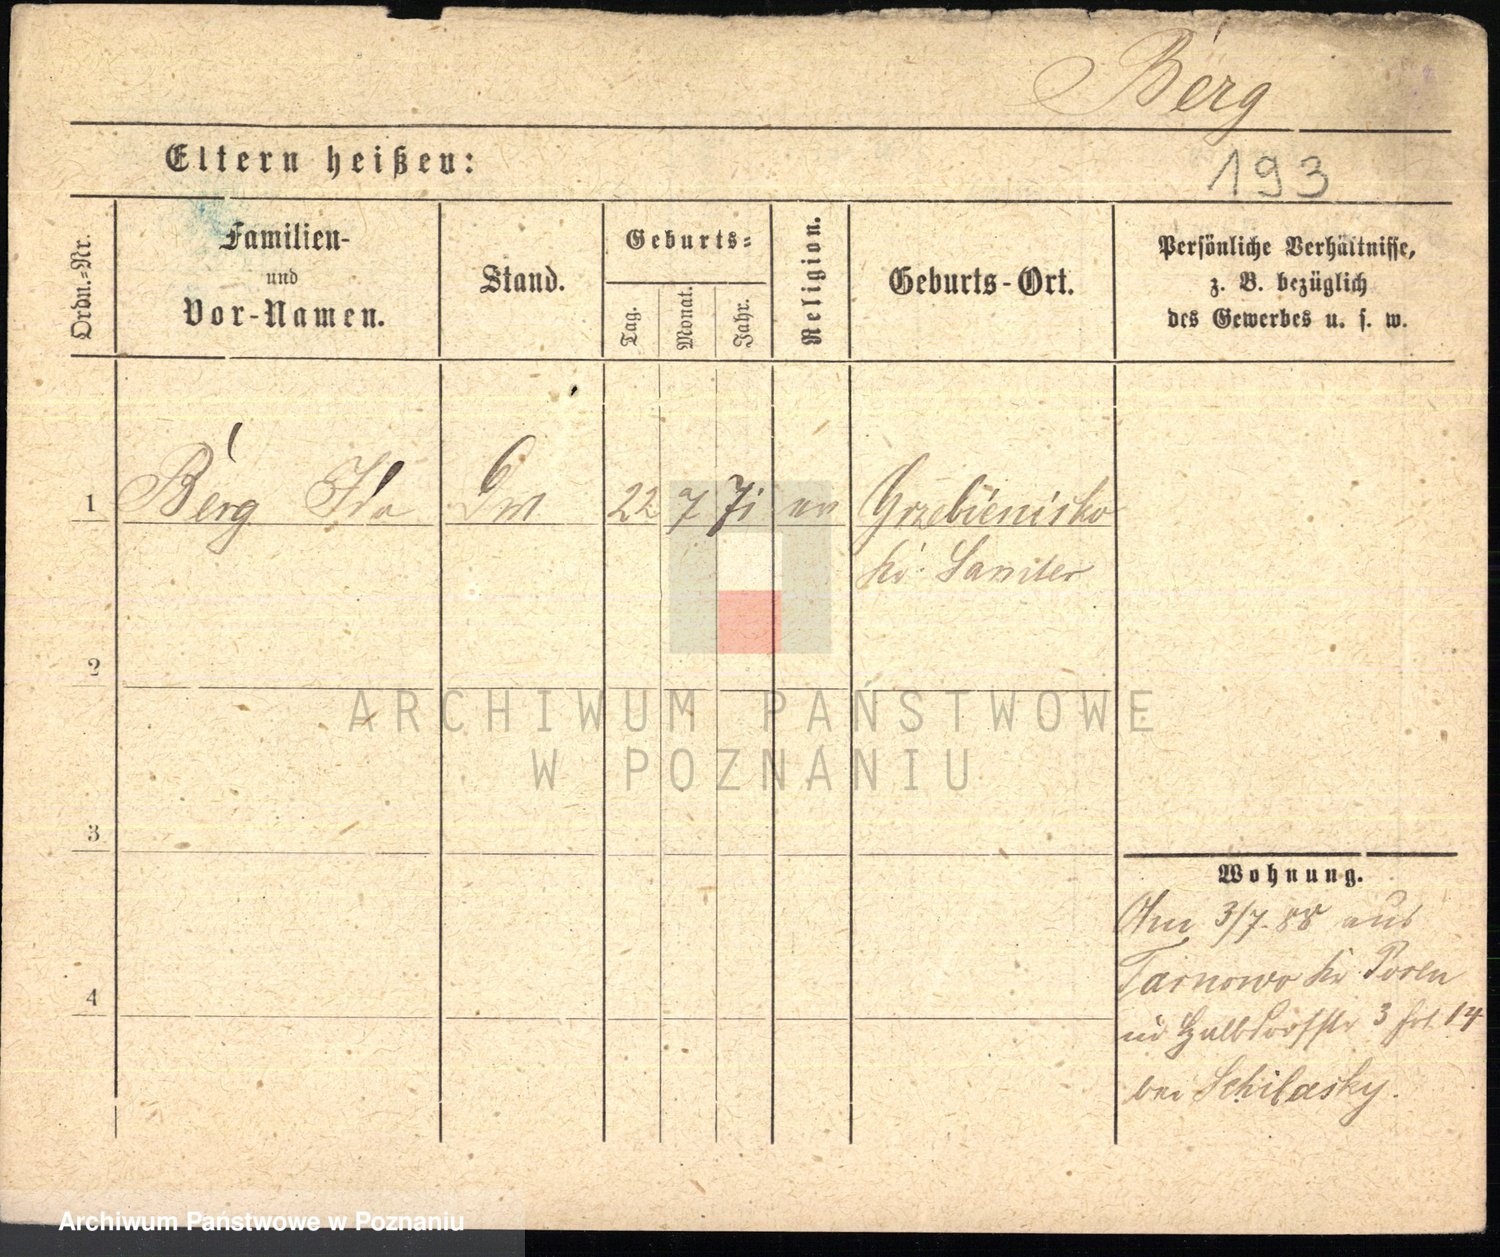 Berg
Eltern heißen:
193
Ordn.-Nr.
Familien-
und
Vor-Namen.
Stand.
Geburts-
Tag.
Monat.
Jahr.
Religion.
Geburts-Ort.
Persönliche Verhältnisse,
z. B. bezüglich
des Gewerbes u. s. w.
1 Berg Ida 22 7 71 ev Grzebienisko
Kr. Samter
2
ARCHIWUM PAŃSTWOWE
W POZNANIU
3
4
Wohnung.
Am 3/7. 88 aus
Tarnowo Kr Posen
Halbdorfstr 3 14
bei Schilasky.
Archiwum Państwowe w Poznaniu